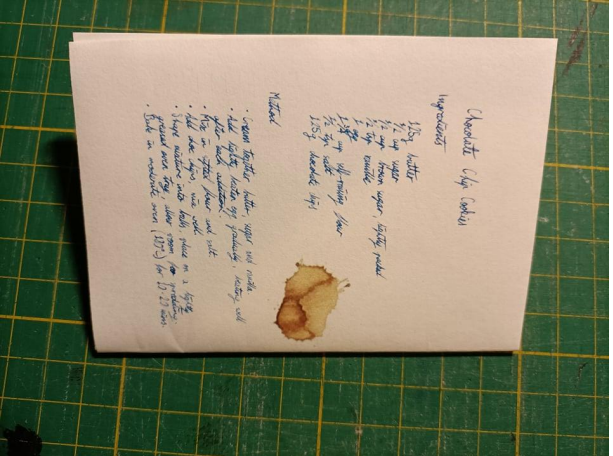 Chocolate Chip Cookies
Ingredients
125g butter
1/2 cup sugar
1/2 cup brown sugar, lightly packed
1/2 tsp vanilla
1 egg
1 3/4 cup self-raising flour
1/2 tsp salt
125g chocolate chips
Method
• Cream together butter, sugar and vanilla
• Add lightly beaten egg gradually, beating well
after each addition
• Mix in sifted flour and salt.
• Add choc chips, mix well
• Shape mixture into balls, place on a lightly
greased oven tray, allow room for spreading.
• Bake in moderate oven (180°) for